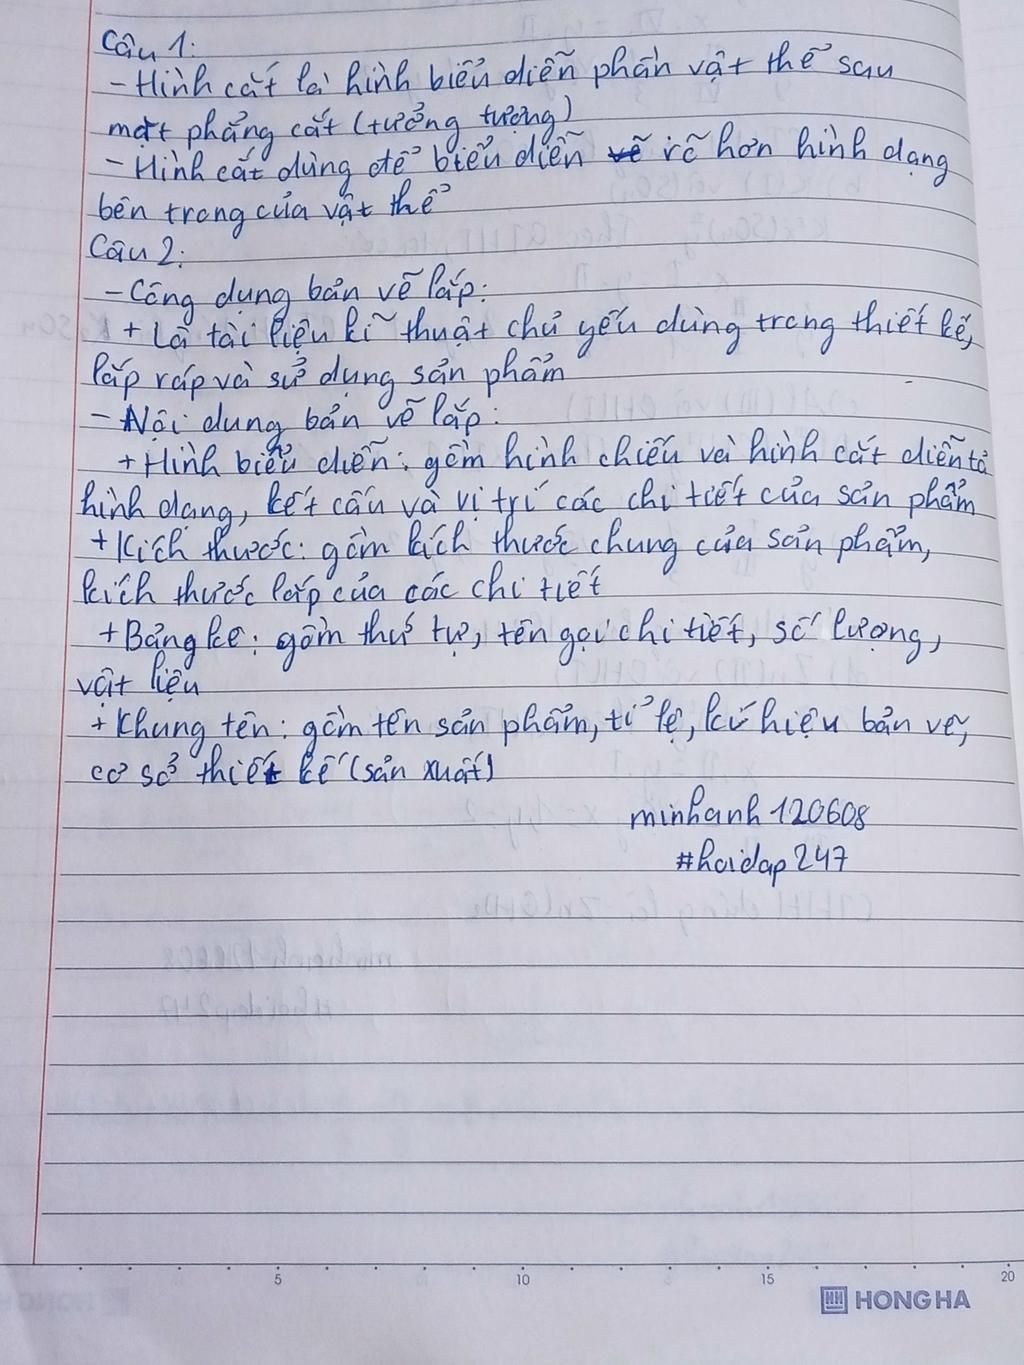 Câu 1:
- Hình cắt là hình biểu diễn phần vật thể sau
mặt phẳng cắt (tưởng tượng)
- Hình cắt dùng để biểu diễn rõ hơn hình dạng
bên trong của vật thể
Câu 2:
- Công dụng bản vẽ lắp:
+ Là tài liệu kĩ thuật chủ yếu dùng trong thiết kế,
lắp ráp và sử dụng sản phẩm
- Nội dung bản vẽ lắp:
+ Hình biểu diễn: gồm hình chiếu và hình cắt diễn tả
hình dạng, kết cấu và vị trí các chi tiết của sản phẩm
+ Kích thước: gồm kích thước chung của sản phẩm,
kích thước lắp của các chi tiết
+ Bảng kê: gồm thứ tự, tên gọi chi tiết, số lượng,
vật liệu
+ Khung tên: gồm tên sản phẩm, tỉ lệ, kí hiệu bản vẽ,
cơ sở thiết kế (sản xuất)
minhanh120608
#hoidap247
5 10 15 20
HONG HA